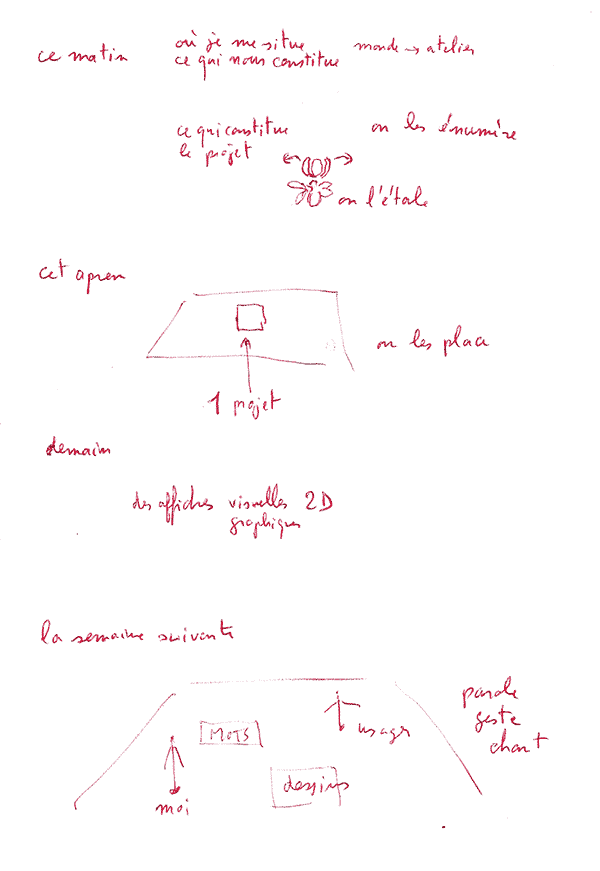 ce matin
où je me situe
ce qui nous constitue
monde → atelier
ce qui constitue
le projet
on les énumère
on l'étale
cet aprem
on les place
1 projet
demain
des affiches visuelles 2D
graphiques
la semaine suivante
parole
geste
chant
MOTS
usager
dessins
moi